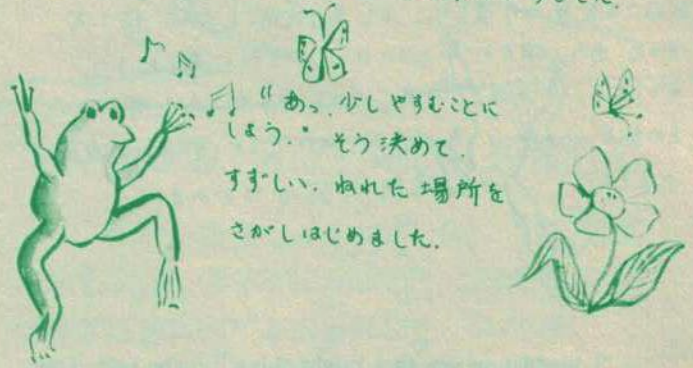 ました.
"あっ、少しやすむことに
しょう." そう決めて、
すずしい、ぬれた 場所を
さがしはじめました.